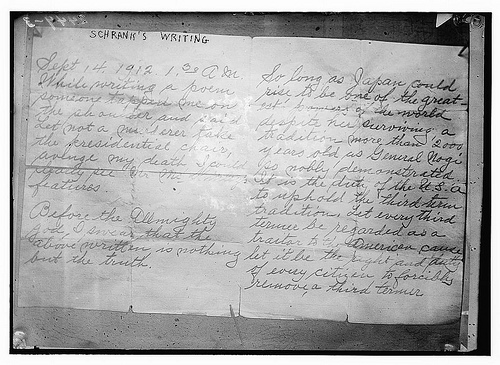 SCHRANK'S WRITING
Sept 14. 1912. 1.30 A.M.
While writing a poem
someone tapped me on
the shoulder and said
Let not a murderer take
the presidential chair,
avenge my death. I could
features.
Before the Allmighty
God I swear that the
above written is nothing
but the truth.
So long as Japan could
rise to be one of the great-
est powers of the world
despite her surviving a
tradition more than 2000
years old as General Nogi
so nobly demonstrated
it is the duty of the U.S.A
to uphold the third term
tradition. Let every third
termer be regarded as a
traitor to the American cause
let it be the right and duty
of every citizen to forcibly
remove, a third termer